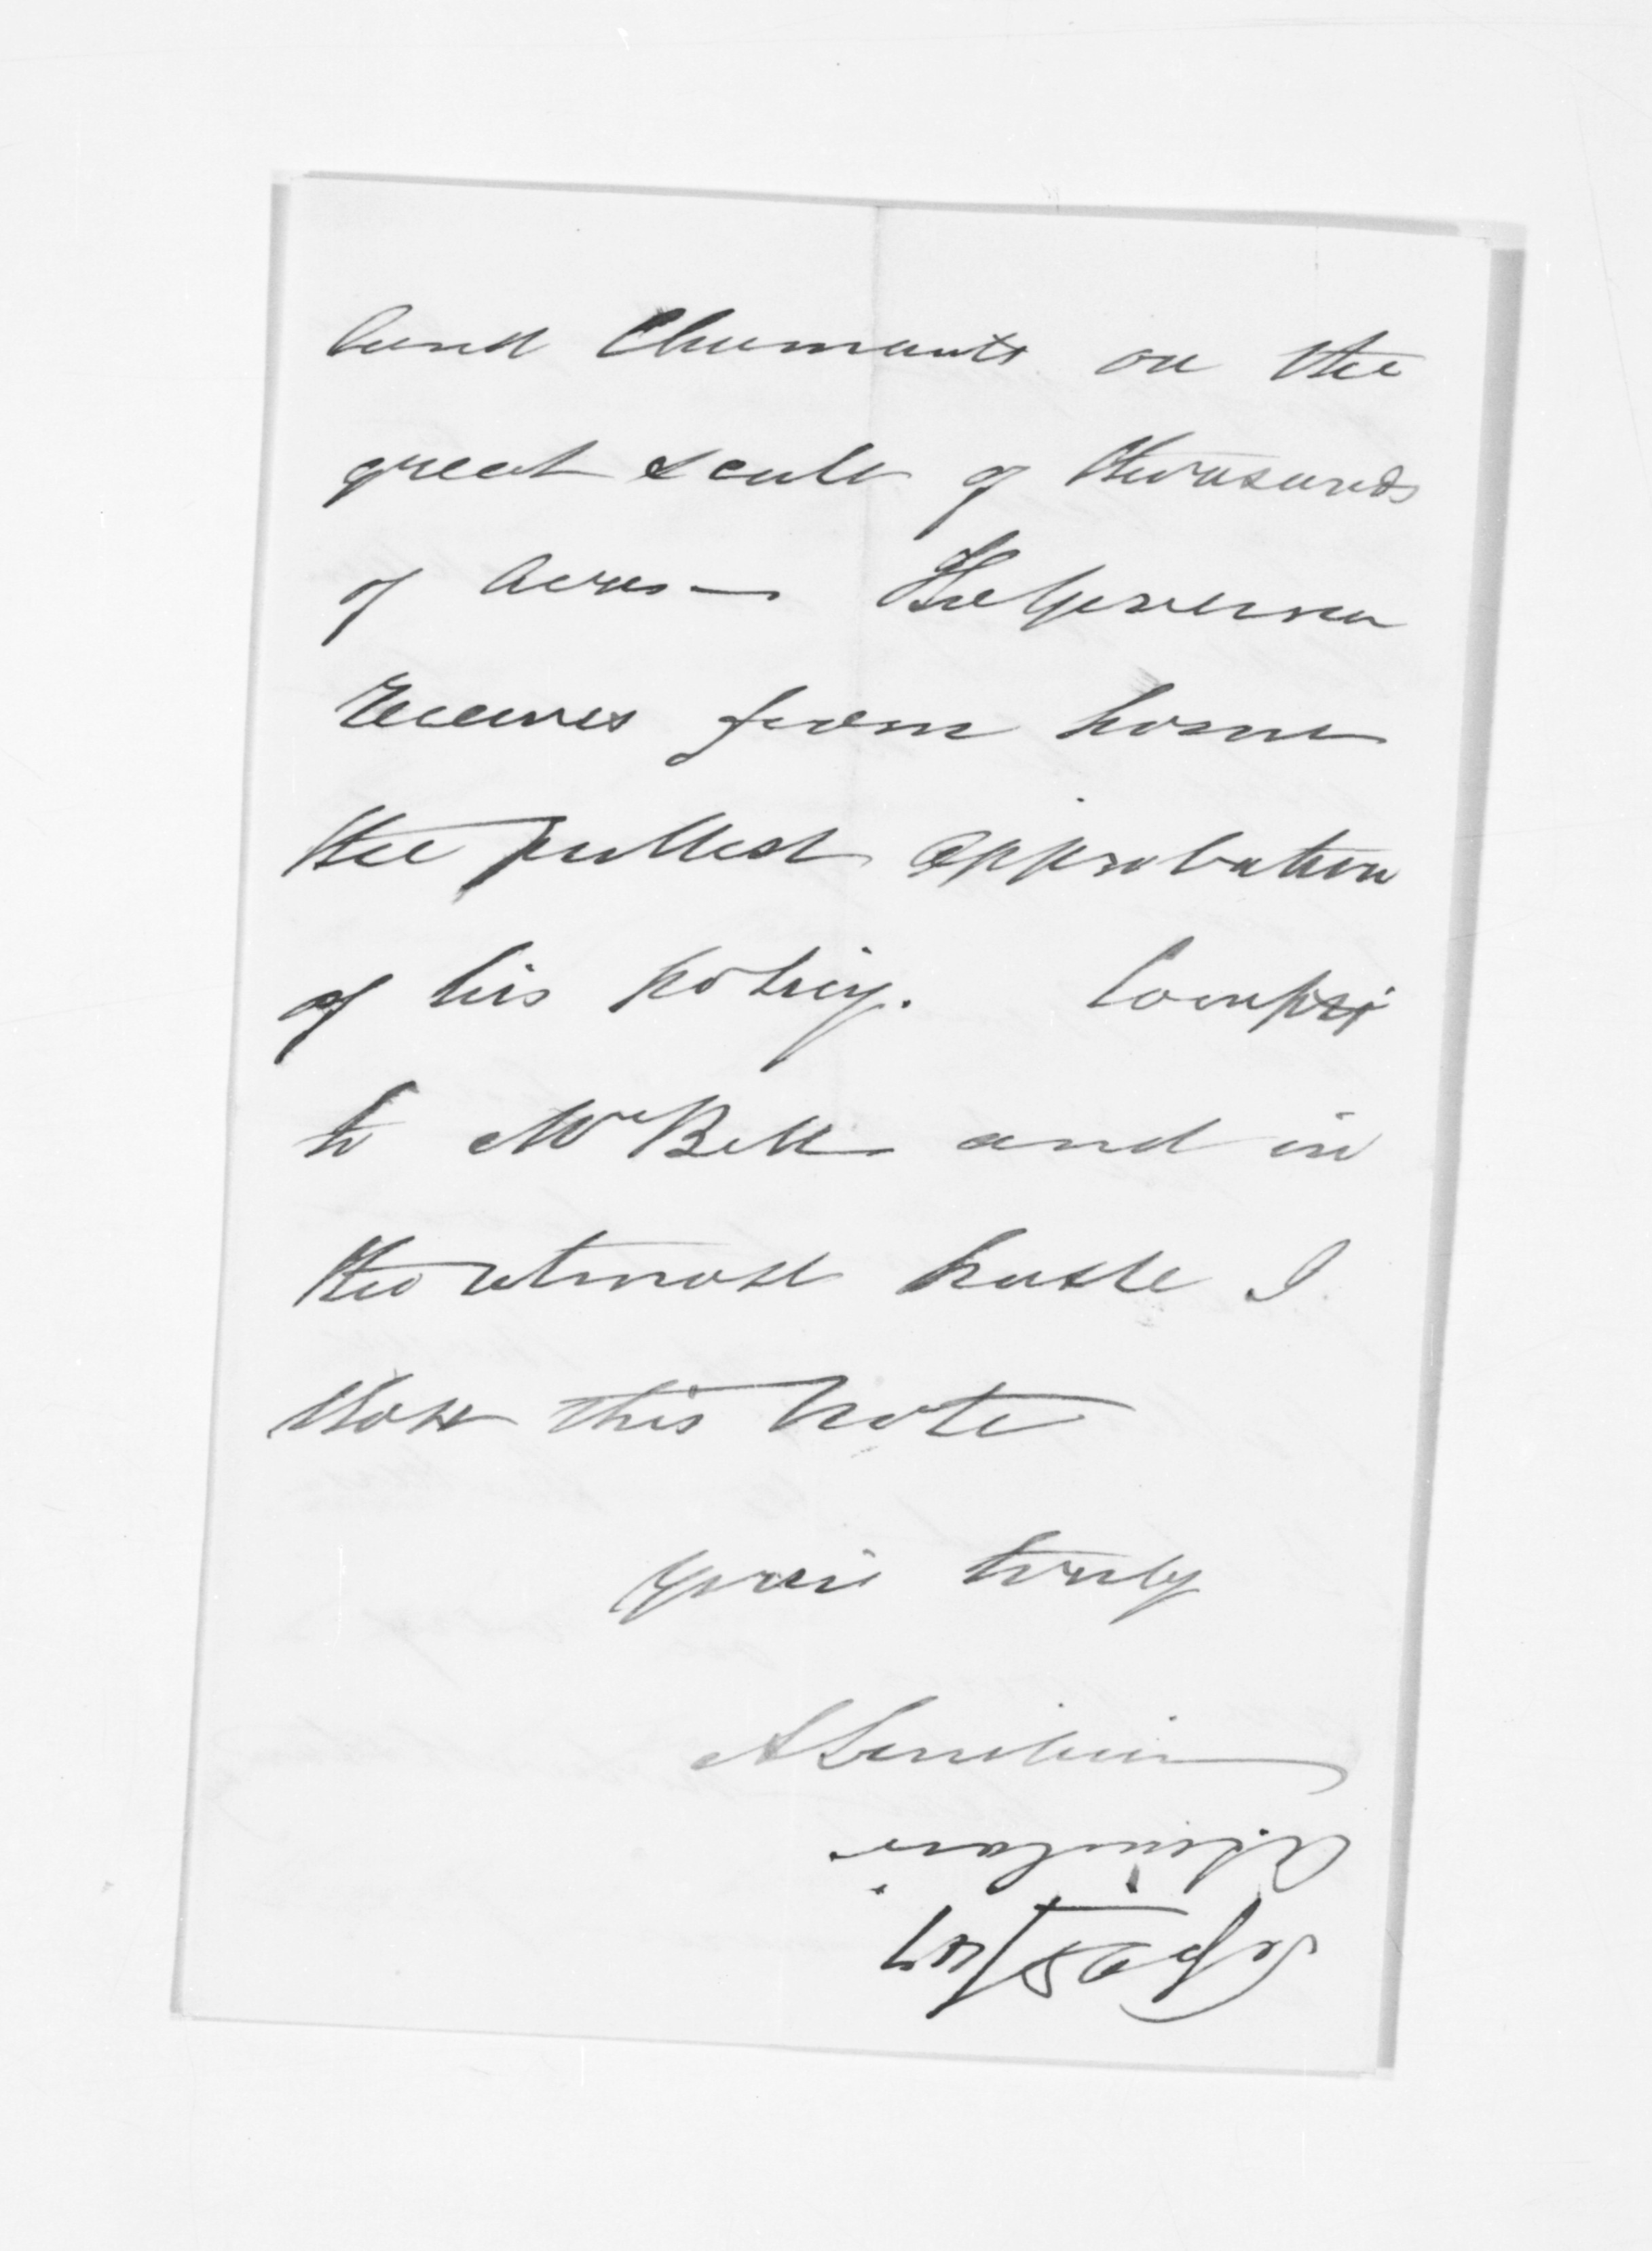 land Claimants on the
great scale of thousands
of acres — The Governor
receives from home
the fullest approbation
of his policy. Comps
to Mrs Bell and in
the utmost haste I
close this note
Yours truly
A Sinclair
Sept 25/47